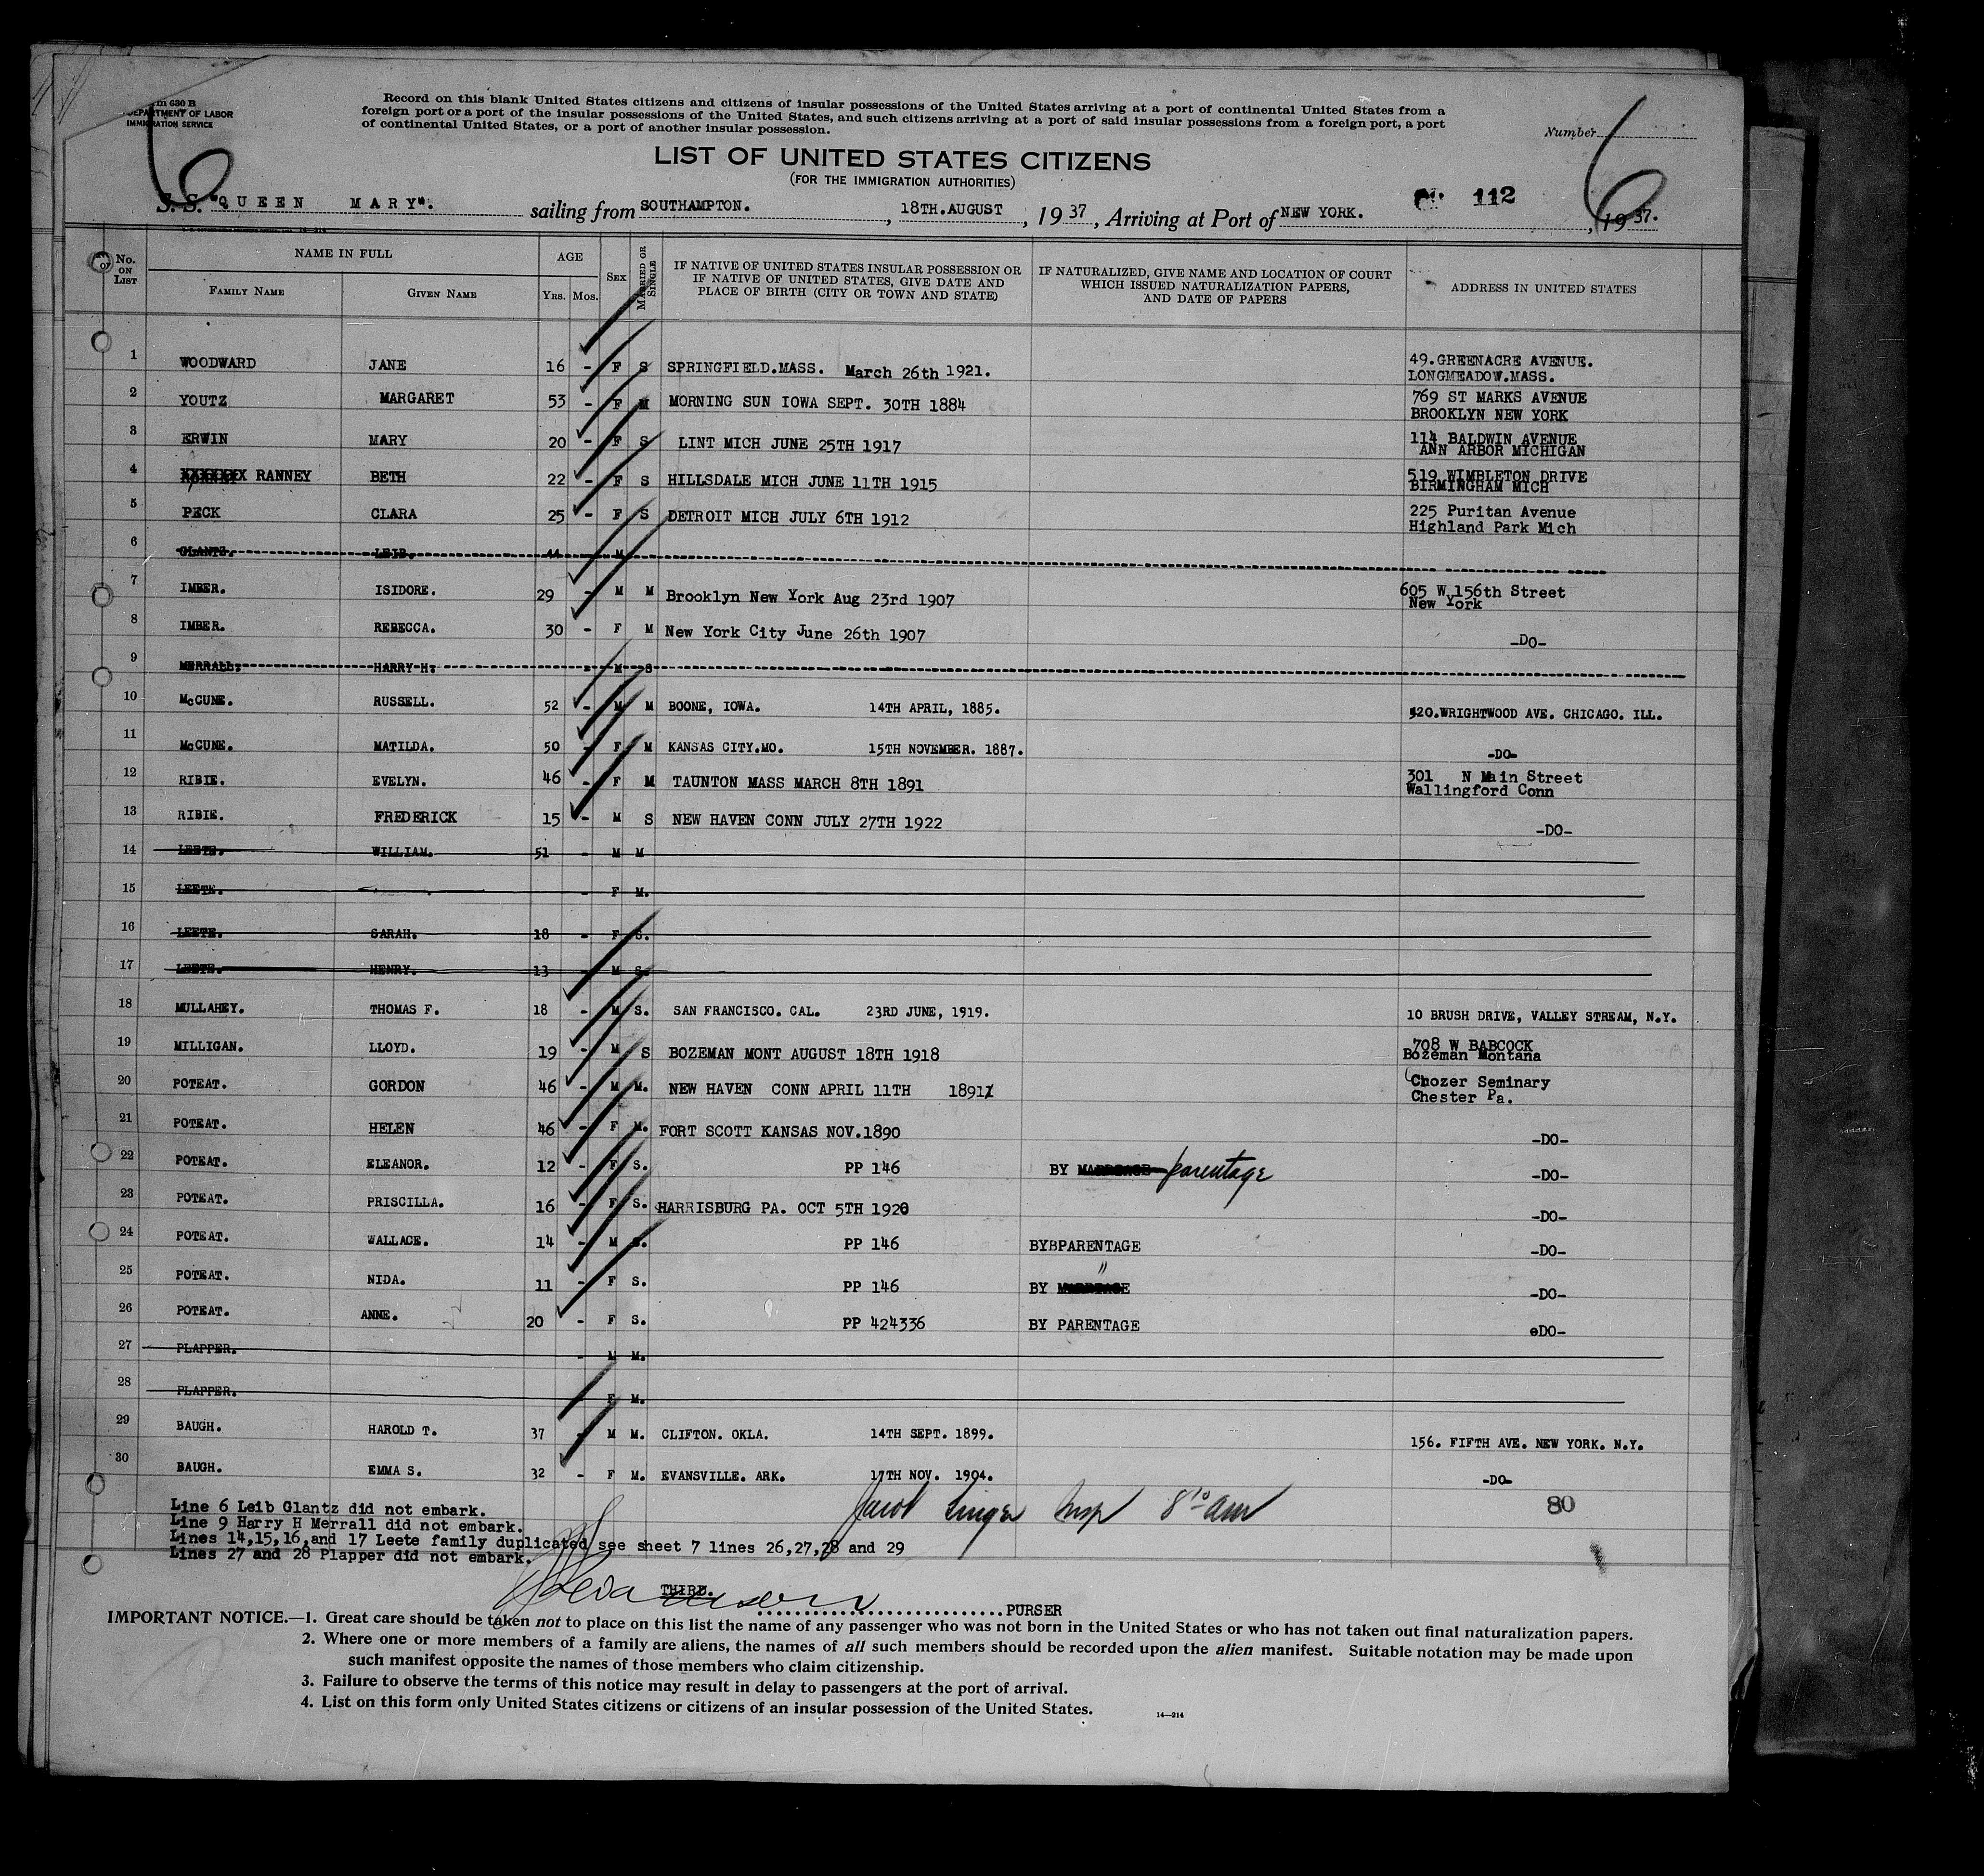 6
rm 630 B
DEPARTMENT OF LABOR
IMMIGRATION SERVICE
Record on this blank United States citizens and citizens of insular possessions of the United States arriving at a port of continental United States from a
foreign port or a port of the insular possessions of the United States, and such citizens arriving at a port of said insular possessions from a foreign port, a port
of continental United States, or a port of another insular possession.
Number
6
LIST OF UNITED STATES CITIZENS
(FOR THE IMMIGRATION AUTHORITIES)
112
S. S. "QUEEN MARY". sailing from SOUTHAMPTON. , 18TH.AUGUST , 19 37 , Arriving at Port of NEW YORK. , 19 37.
No. ON LIST
NAME IN FULL
FAMILY NAME
GIVEN NAME
AGE
YRS. MOS.
SEX
MARRIED OR SINGLE
IF NATIVE OF UNITED STATES INSULAR POSSESSION OR
IF NATIVE OF UNITED STATES, GIVE DATE AND
PLACE OF BIRTH (CITY OR TOWN AND STATE)
IF NATURALIZED, GIVE NAME AND LOCATION OF COURT
WHICH ISSUED NATURALIZATION PAPERS,
AND DATE OF PAPERS
ADDRESS IN UNITED STATES
1 WOODWARD JANE 16 - F S SPRINGFIELD.MASS. March 26th 1921. 49.GREENACRE AVENUE.
LONGMEADOW.MASS.
2 YOUTZ MARGARET 53 - F M MORNING SUN IOWA SEPT. 30TH 1884 769 ST MARKS AVENUE
BROOKLYN NEW YORK
3 ERWIN MARY 20 - F S LINT MICH JUNE 25TH 1917 114 BALDWIN AVENUE
ANN ARBOR MICHIGAN
4 RANNEY BETH 22 - F S HILLSDALE MICH JUNE 11TH 1915 519 WIMBLETON DRIVE
BIRMINGHAM MICH
5 PECK CLARA 25 - F S DETROIT MICH JULY 6TH 1912 225 Puritan Avenue
Highland Park Mich
6 GLANTZ. LEIB. 44 M
7 IMBER. ISIDORE. 29 - M M Brooklyn New York Aug 23rd 1907 605 W 156th Street
New York
8 IMBER. REBECCA. 30 - F M New York City June 26th 1907 -DO-
9 MERRALL. HARRY H. - M S
10 McCUNE. RUSSELL. 52 - M M BOONE, IOWA. 14TH APRIL, 1885. 520.WRIGHTWOOD AVE. CHICAGO. ILL.
11 McCUNE. MATILDA. 50 - F M KANSAS CITY.MO. 15TH NOVEMBER. 1887. -DO-
12 RIBIE. EVELYN. 46 - F M TAUNTON MASS MARCH 8TH 1891 301 N Main Street
Wallingford Conn
13 RIBIE. FREDERICK 15 - M S NEW HAVEN CONN JULY 27TH 1922 -DO-
14 LEETE. WILLIAM. 51 - M M
15 LEETE. - F M.
16 LEETE. SARAH. 18 - F S.
17 LEETE. HENRY. 13 - M S.
18 MULLAHEY. THOMAS F. 18 - M S. SAN FRANCISCO. CAL. 23RD JUNE, 1919. 10 BRUSH DRIVE, VALLEY STREAM, N.Y.
19 MILLIGAN. LLOYD. 19 - M S BOZEMAN MONT AUGUST 18TH 1918 708 W BABCOCK
Bozeman Montana
20 POTEAT. GORDON 46 - M M. NEW HAVEN CONN APRIL 11TH 1891 Chozer Seminary
Chester Pa.
21 POTEAT. HELEN 46 - F M. FORT SCOTT KANSAS NOV.1890 -DO-
22 POTEAT. ELEANOR. 12 - F S. PP 146 BY MARRIAGE parentage -DO-
23 POTEAT. PRISCILLA. 16 - F S. HARRISBURG PA. OCT 5TH 1920 -DO-
24 POTEAT. WALLACE. 14 - M S. PP 146 BYBPARENTAGE -DO-
25 POTEAT. NIDA. 11 - F S. PP 146 BY MARRIAGE " -DO-
26 POTEAT. ANNE. 20 - F S. PP 424336 BY PARENTAGE eDO-
27 PLAPPER. - M M.
28 PLAPPER. F M.
29 BAUGH. HAROLD T. 37 - M M. CLIFTON. OKLA. 14TH SEPT. 1899. 156. FIFTH AVE. NEW YORK. N.Y.
30 BAUGH. EMMA S. 32 - F M. EVANSVILLE. ARK. 17TH NOV. 1904. -DO-
Jacob Singer Insp 8 10 am
80
Line 6 Leib Glantz did not embark.
Line 9 Harry H Merrall did not embark.
Lines 14,15,16,and 17 Leete family duplicated see sheet 7 lines 26,27,28 and 29
Lines 27 and 28 Plapper did not embark.
THIRD.
PURSER
IMPORTANT NOTICE.—1. Great care should be taken not to place on this list the name of any passenger who was not born in the United States or who has not taken out final naturalization papers.
2. Where one or more members of a family are aliens, the names of all such members should be recorded upon the alien manifest. Suitable notation may be made upon
such manifest opposite the names of those members who claim citizenship.
3. Failure to observe the terms of this notice may result in delay to passengers at the port of arrival.
4. List on this form only United States citizens or citizens of an insular possession of the United States.
14—214